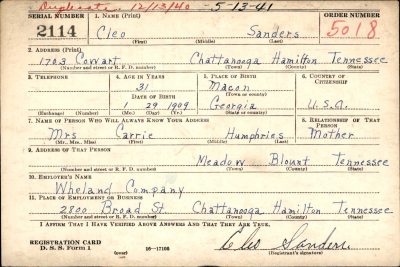 Duplicate 12/13/40 - 5-13-41
SERIAL NUMBER 1. NAME (Print) ORDER NUMBER
2114 Cleo Sanders 5018
(First) (Middle) (Last)
2. ADDRESS (Print)
1703 Cowart Chattanooga Hamilton Tennessee
(Number and street or R. F. D. number) (Town) (County) (State)
3. TELEPHONE 4. AGE IN YEARS 5. PLACE OF BIRTH 6. COUNTRY OF CITIZENSHIP
31 Macon
DATE OF BIRTH (Town or county)
1 29 1909 Georgia U.S.A.
(Exchange) (Number) (Mo.) (Day) (Yr.) (State or country)
7. NAME OF PERSON WHO WILL ALWAYS KNOW YOUR ADDRESS 8. RELATIONSHIP OF THAT PERSON
Mrs Carrie Humphries Mother
(Mr., Mrs., Miss) (First) (Middle) (Last)
9. ADDRESS OF THAT PERSON
Meadow Blount Tennessee
(Number and street or R. F. D. number) (Town) (County) (State)
10. EMPLOYER'S NAME
Wheland Company
11. PLACE OF EMPLOYMENT OR BUSINESS
2800 Broad St. Chattanooga Hamilton Tennessee
(Number and street or R. F. D. number) (Town) (County) (State)
I AFFIRM THAT I HAVE VERIFIED ABOVE ANSWERS AND THAT THEY ARE TRUE.
REGISTRATION CARD
D. S. S. Form 1 (over) 16—17105 Cleo Sanders
(Registrant's signature)